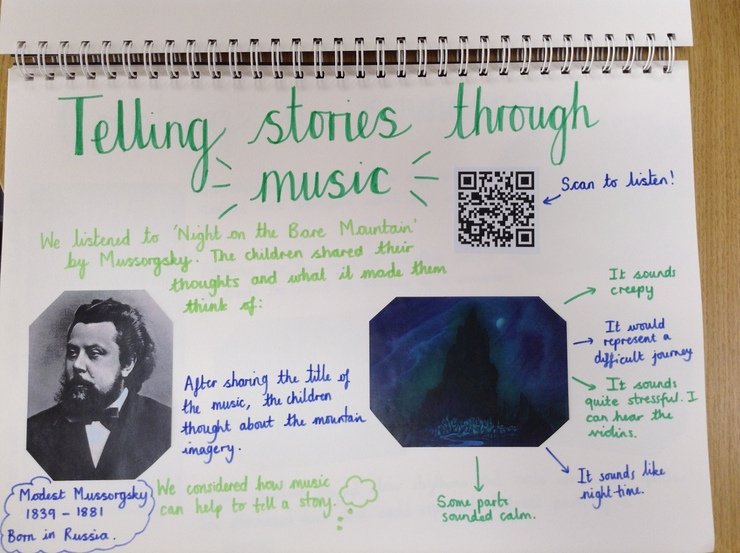 Telling stories through
music
Scan to listen!
We listened to 'Night on the Bare Mountain'
by Mussorgsky. The children shared their
thoughts and what it made them
think of:
It sounds
creepy
It would
represent a
difficult journey
It sounds
quite stressful. I
can hear the
violins.
It sounds like
night-time.
Some parts
sounded calm.
After sharing the title of
the music, the children
thought about the mountain
imagery.
We considered how music
can help to tell a story.
Modest Mussorgsky
1839 - 1881
Born in Russia.